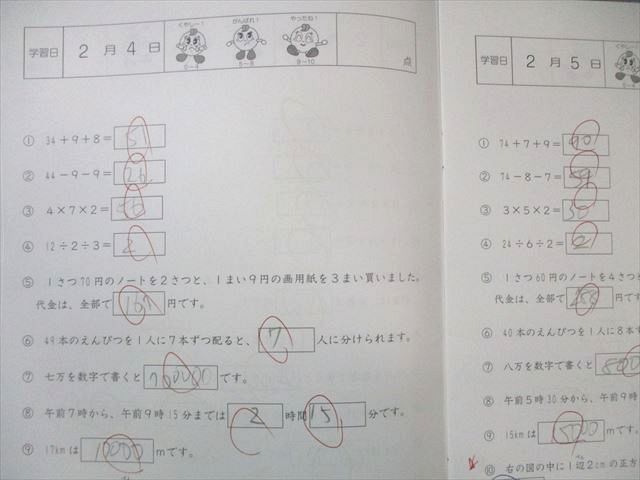 学習日 2月4日
くやしー! がんばれ! やったね!
0~4 5~8 9~10 点
① 34+9+8= 51
② 44-9-9= 26
③ 4×7×2= 56
④ 12÷2÷3= 2
⑤ 1さつ70円のノートを2さつと、1まい9円の画用紙を3まい買いました。
代金は、全部で 167 円です。
⑥ 49本のえんぴつを1人に7本ずつ配ると、 7 人に分けられます。
⑦ 七万を数字で書くと 70000 です。
⑧ 午前7時から、午前9時15分までは 2 時間 15 分です。
⑨ 17kmは mです。
学習日 2月5日
くやしー
① 74+7+9= 90
② 74-8-7= 59
③ 3×5×2= 30
④ 24÷6÷2= 2
⑤ 1さつ60円のノートを4さつと
代金は、全部で 円です。
⑥ 40本のえんぴつを1人に8本ず
⑦ 八万を数字で書くと 800
⑧ 午前5時30分から、午前9時
⑨ 15kmは mです。
⑩ 右の図の中に1辺2cmの正方